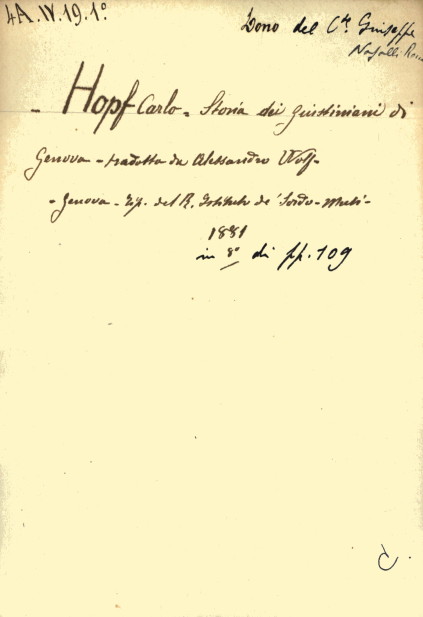 4A.IV.19.1º
Dono del Cte Giuseppe
Nasalli Ro
- Hopf Carlo = Storia dei Giustiniani di
Genova - tradotta da Alessandro Wolf -
- Genova - Tip. del R. Istituto de' Sordo-Muti -
1881
in 8º di pp. 109